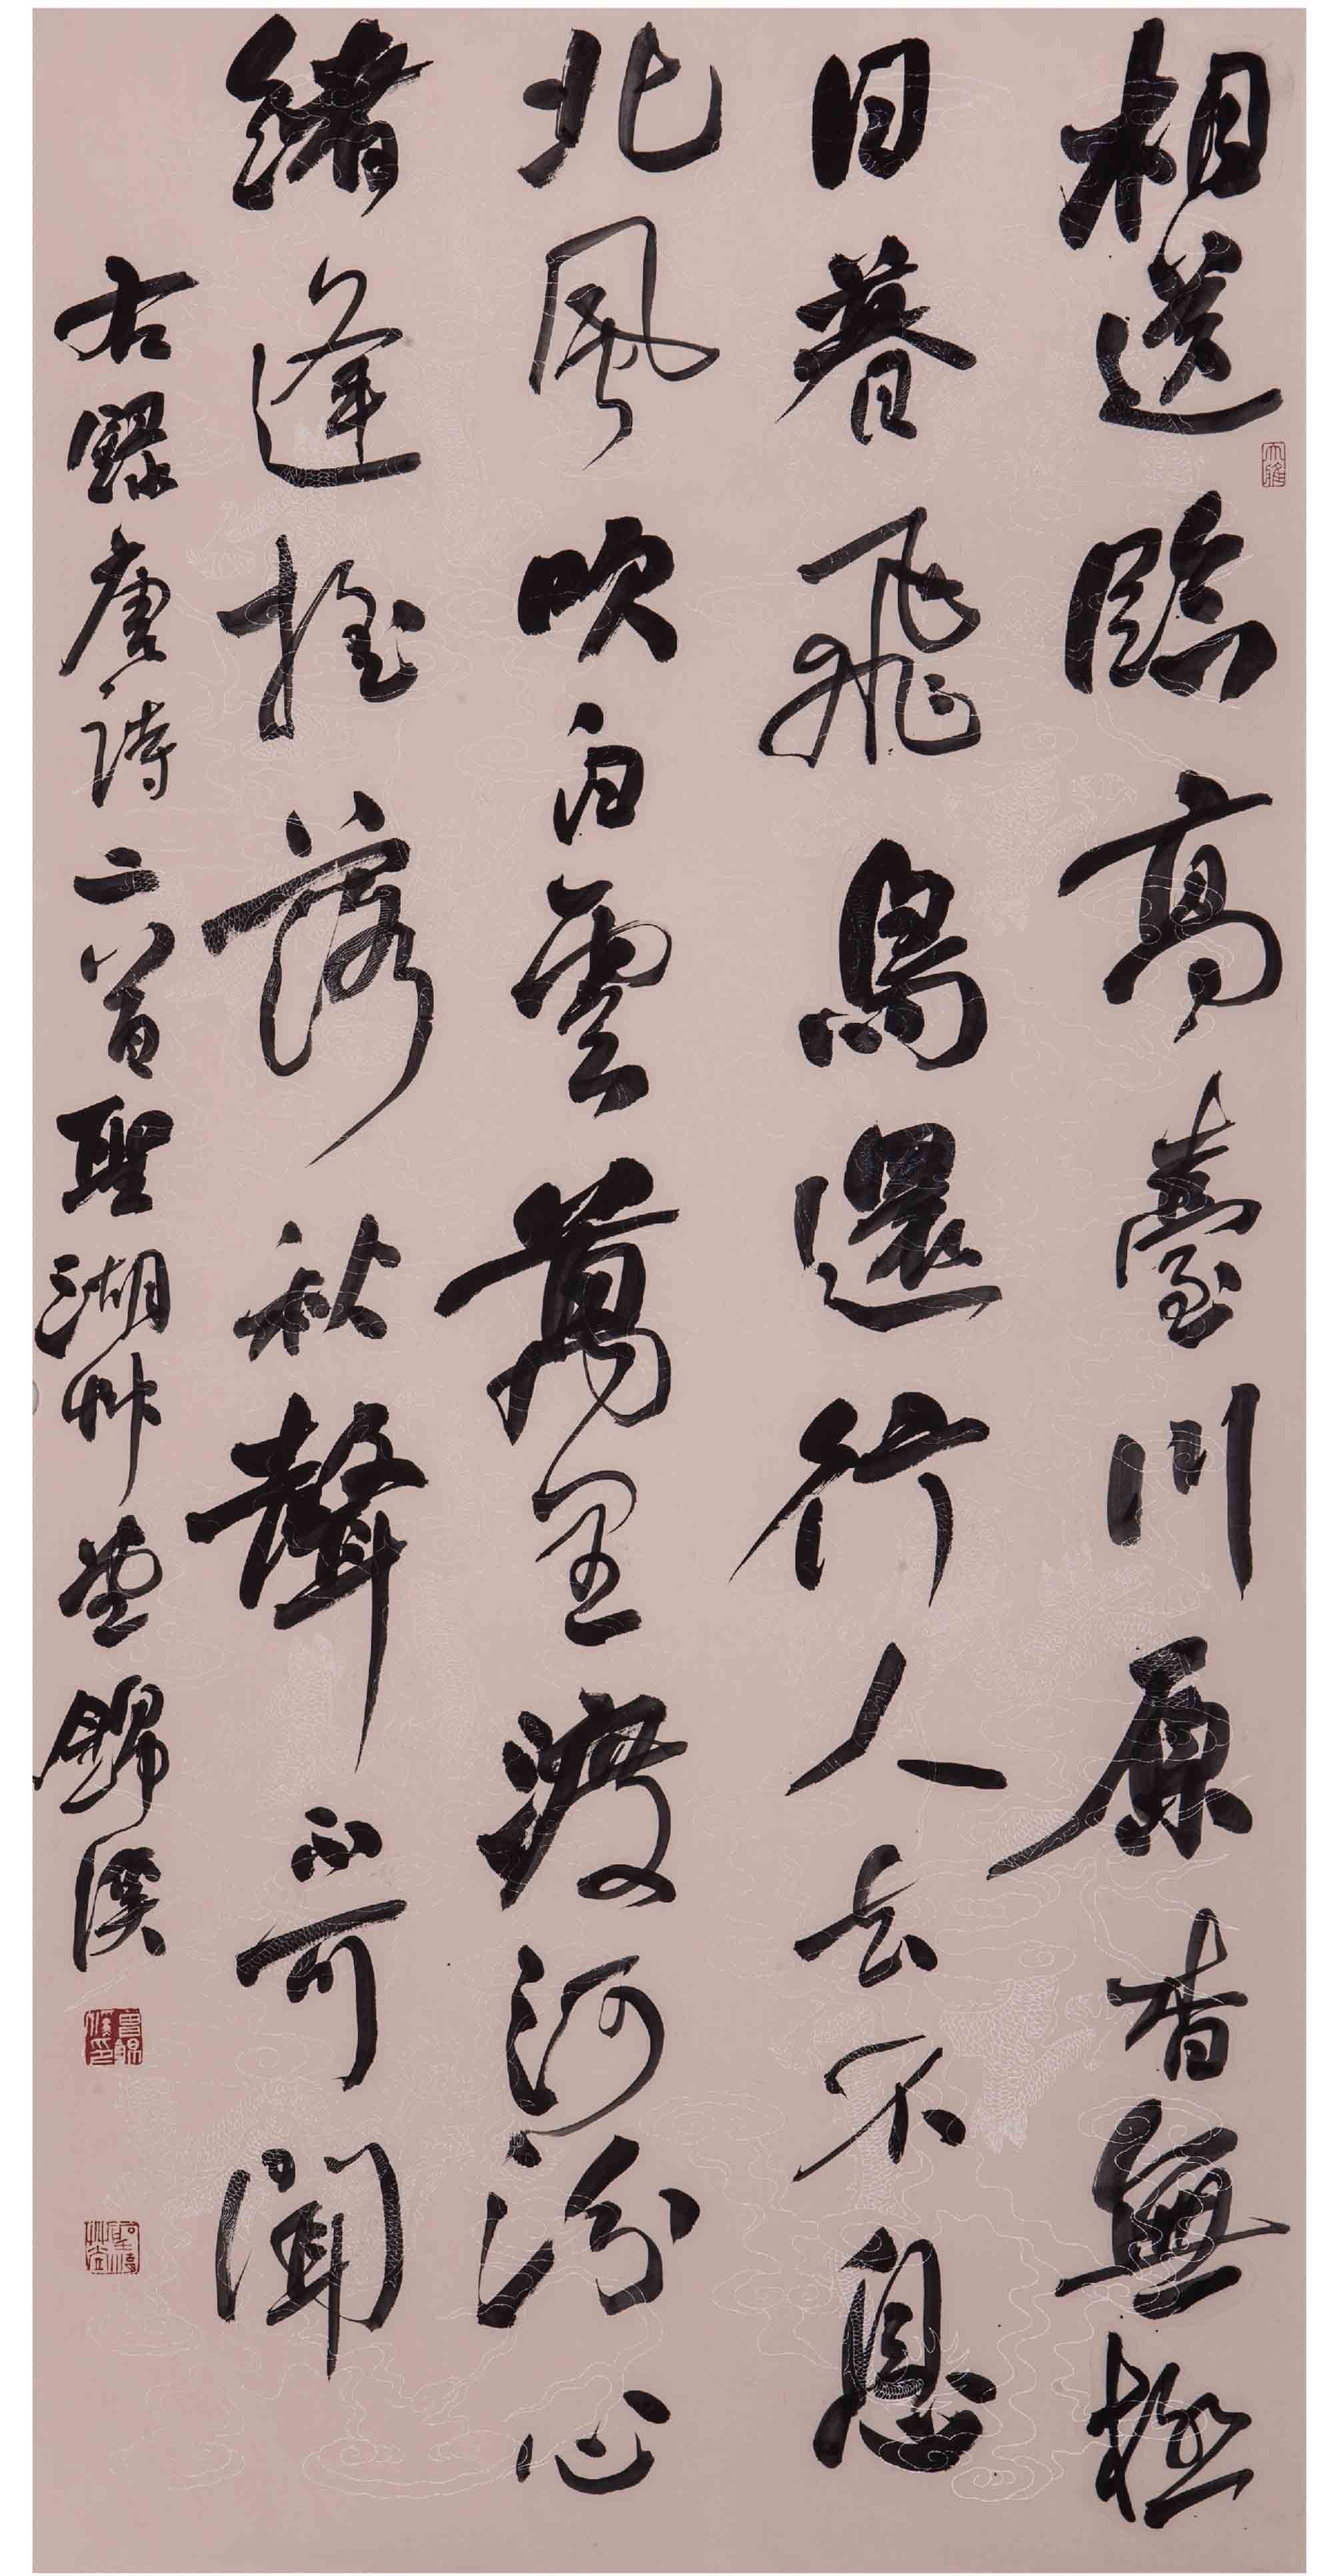 相送臨高臺川原杳無極
日暮飛鳥還行人去不息
北風吹白雲萬里渡河汾心
緒逢搖落秋聲不可聞
右録唐詩二首聖湖艸堂錦溪
大雅